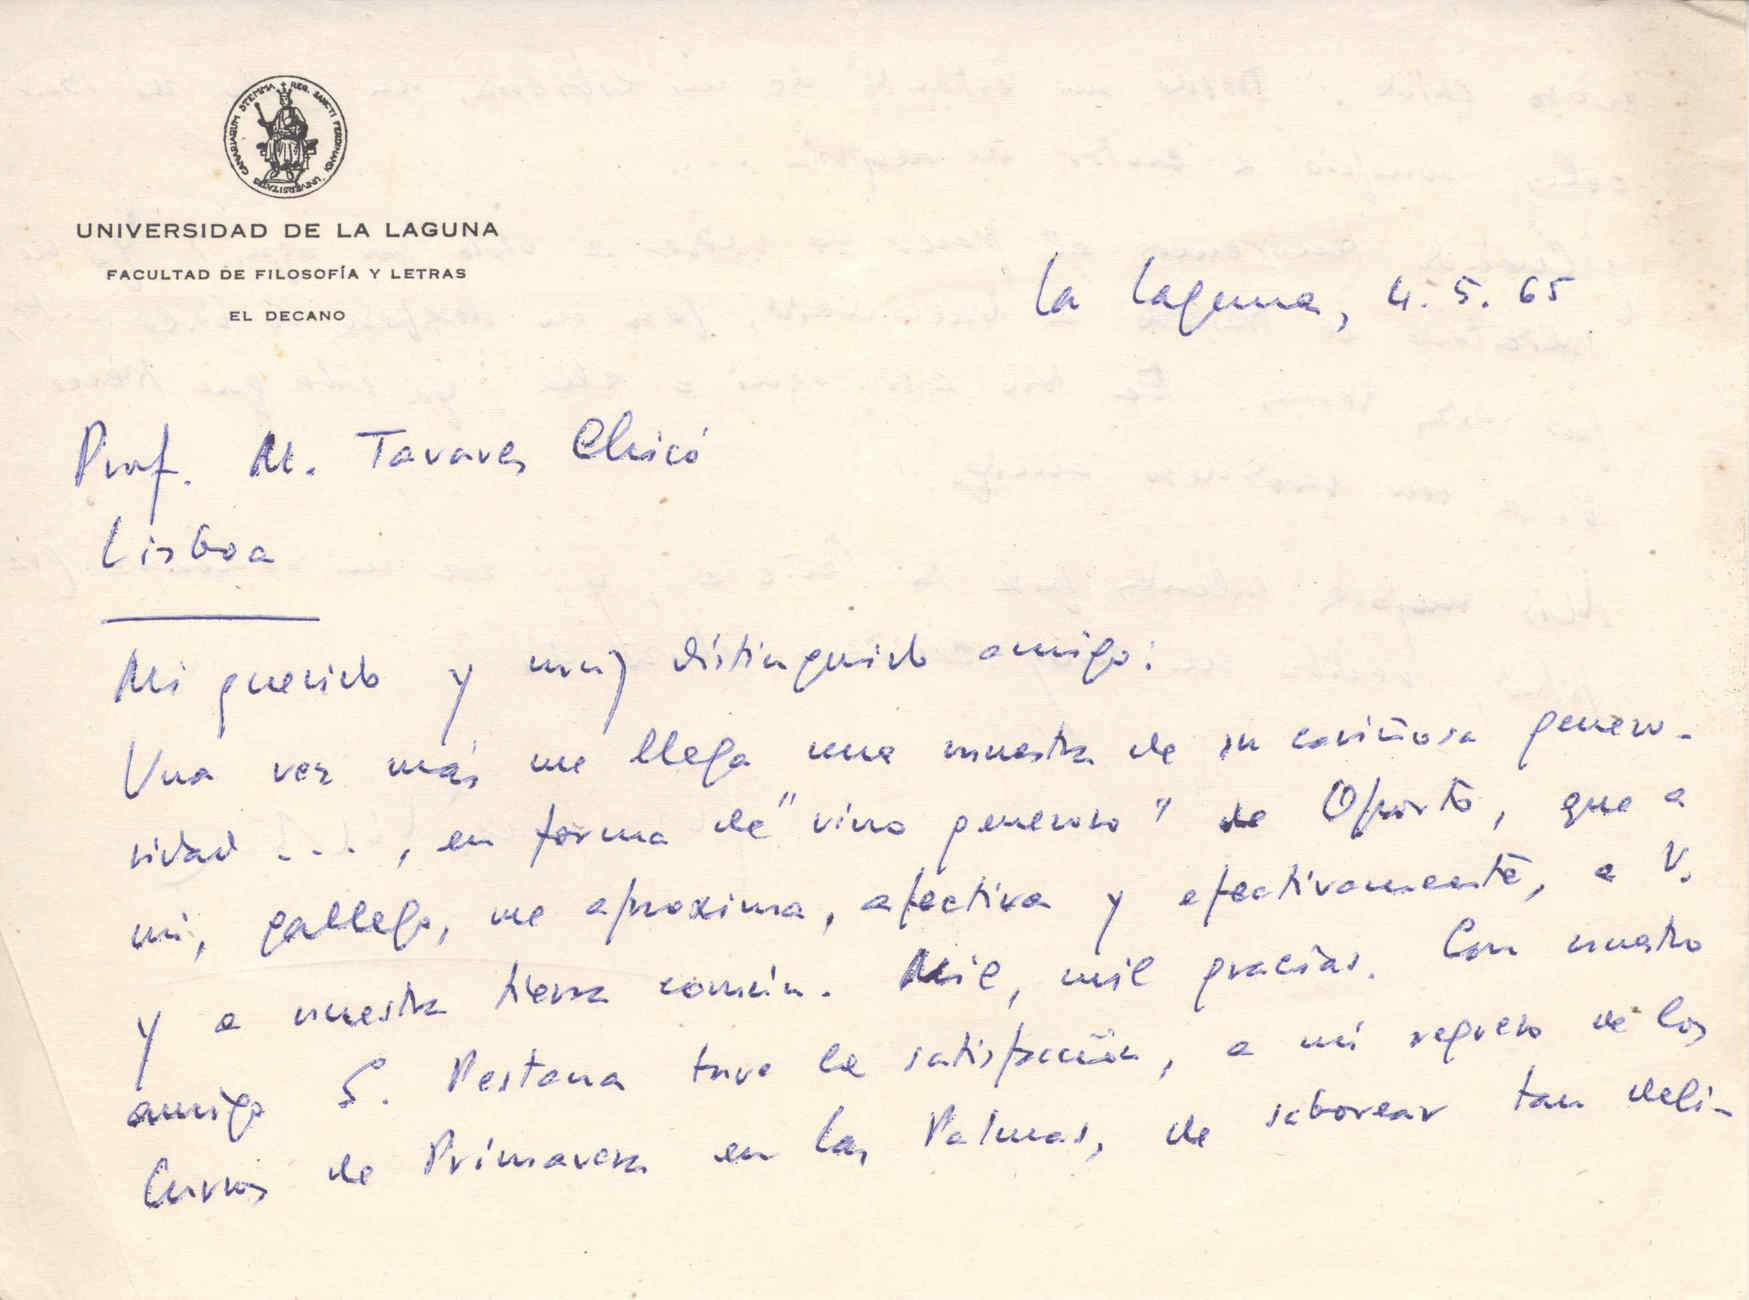 CANARIARUM STEMMA REG. SANCTI FERDINANDI UNIVERSITATIS
UNIVERSIDAD DE LA LAGUNA
FACULTAD DE FILOSOFÍA Y LETRAS
EL DECANO
La Laguna, 4.5.65
Prof. M. Tavares Chicó
Lisboa
Mi querido y muy distinguido amigo:
Una vez más me llega una muestra de su cariñosa genero-
sidad ..., en forma de "vino generoso" de Oporto, que a
mí, gallego, me aproxima, afectiva y efectivamente, a V.
y a nuestra tierra común. Mil, mil gracias. Con nuestro
amigo S. Pestana tuve la satisfacción, a mi regreso de los
Cursos de Primavera en Las Palmas, de saborear tan deli-